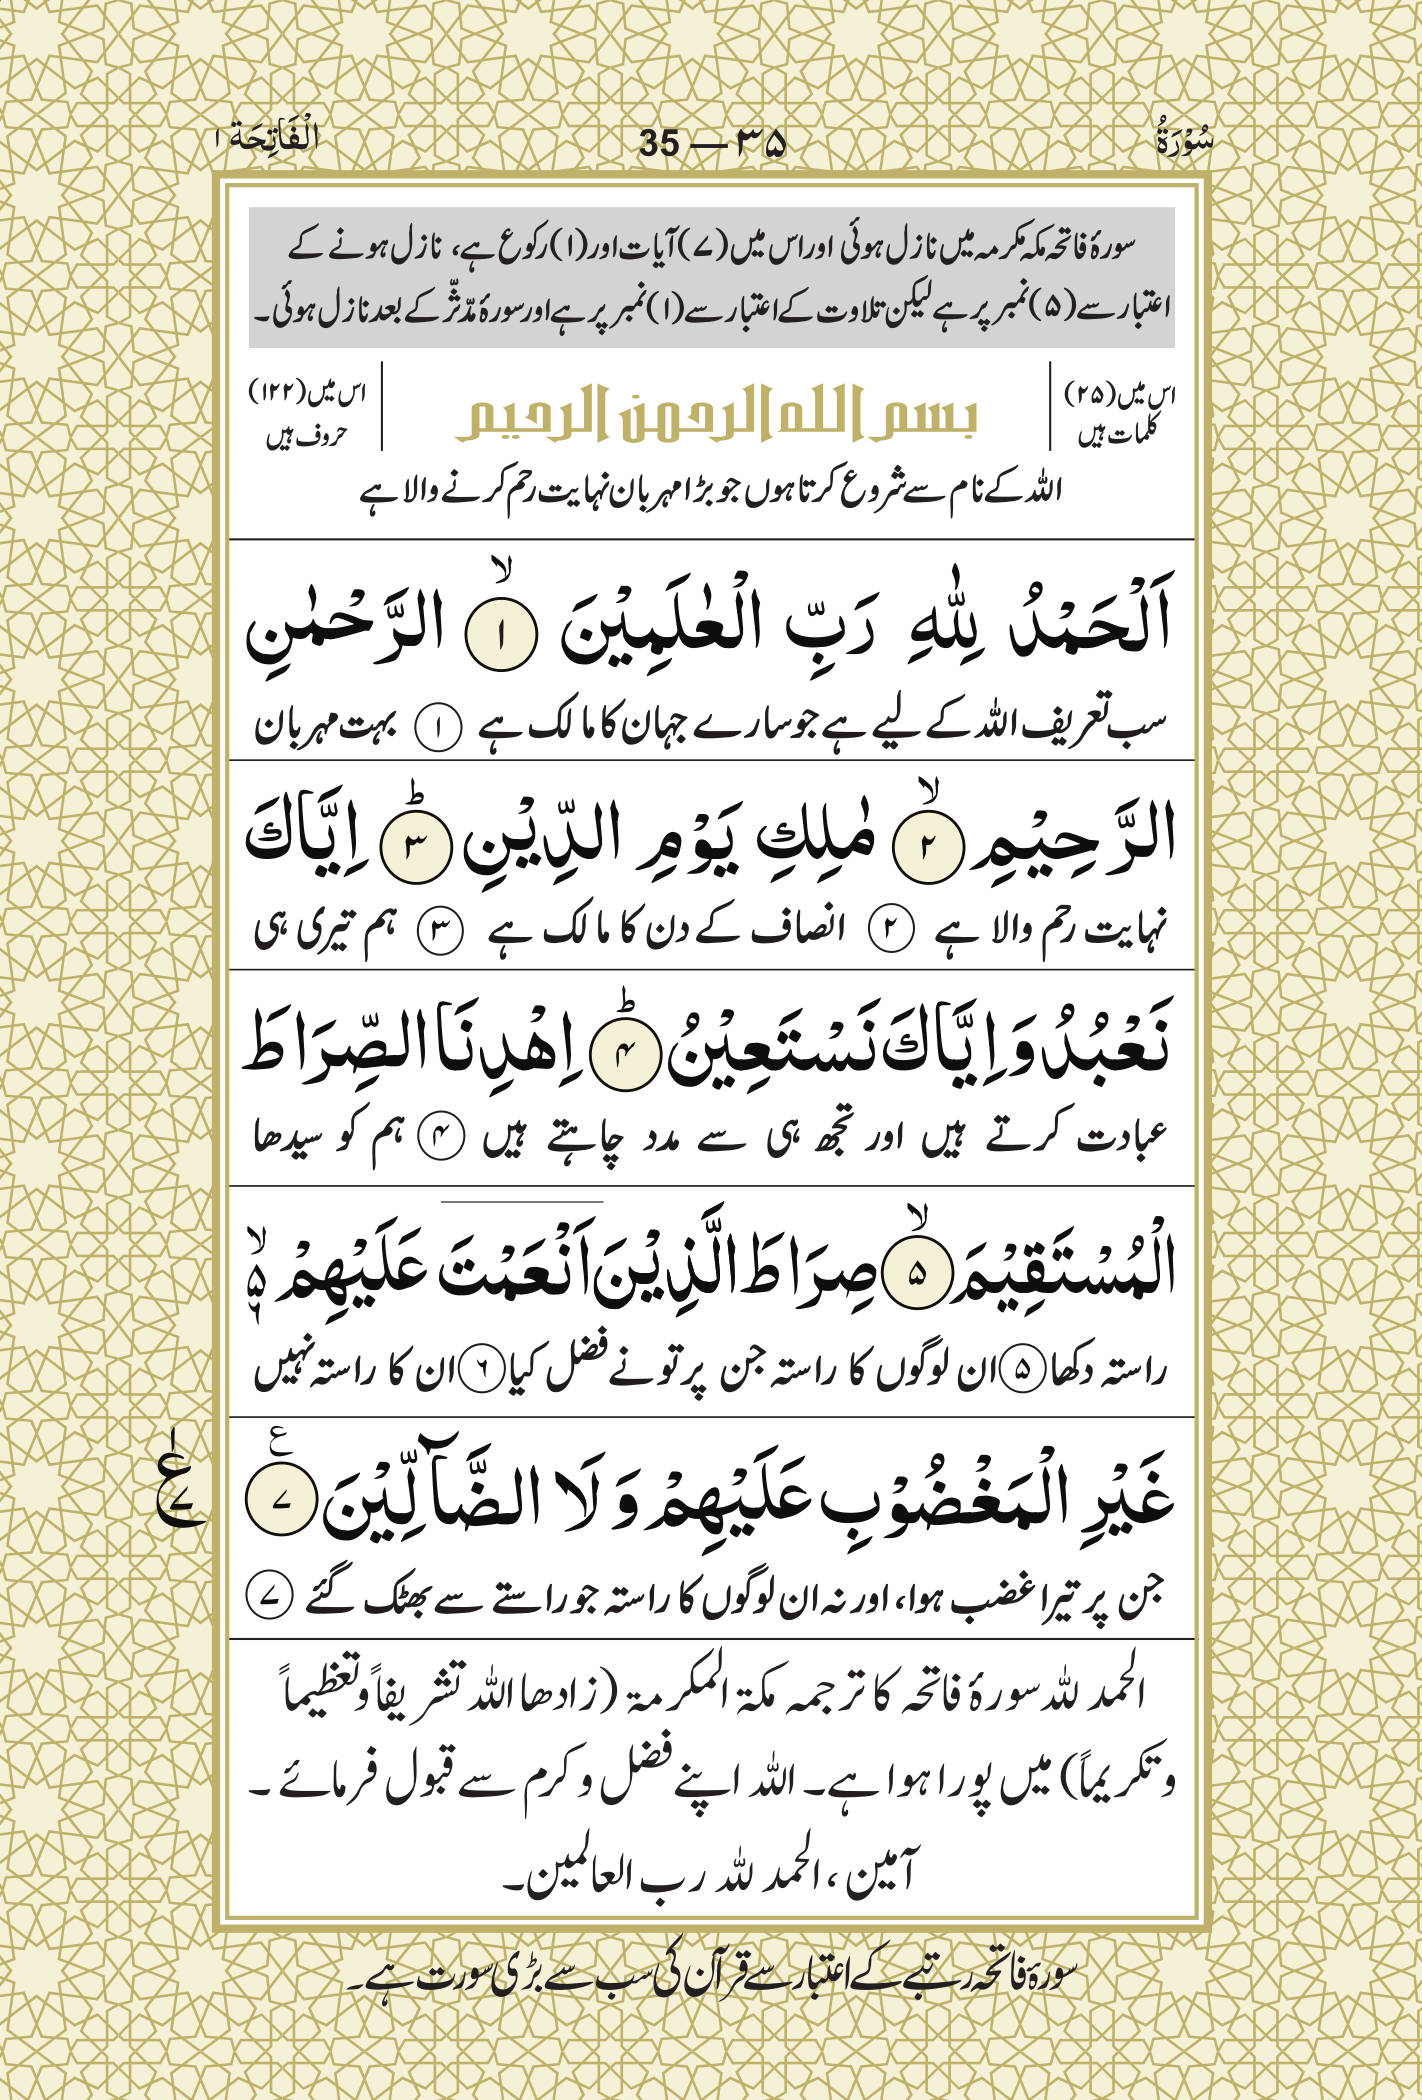 سُوْرَۃُ
۳۵ — 35
الْفَاتِحَة ۱
سورۂ فاتحہ مکہ مکرمہ میں نازل ہوئی اور اس میں (۷) آیات اور (۱) رکوع ہے، نازل ہونے کے
اعتبار سے (۵) نمبر پر ہے لیکن تلاوت کے اعتبار سے (۱) نمبر پر ہے اور سورۂ مدّثّر کے بعد نازل ہوئی۔
اس میں (۲۵)
کلمات ہیں
بسم الله الرحمن الرحيم
اس میں (۱۲۲)
حروف ہیں
اللہ کے نام سے شروع کرتا ہوں جو بڑا مہربان نہایت رحم کرنے والا ہے
اَلْحَمْدُ لِلّٰهِ رَبِّ الْعٰلَمِيْنَ ۙ ۱ الرَّحْمٰنِ
سب تعریف اللہ کے لیے ہے جو سارے جہان کا مالک ہے ۱ بہت مہربان
الرَّحِيْمِ ۙ ۲ مٰلِكِ يَوْمِ الدِّيْنِ ؕ ۳ اِيَّاكَ
نہایت رحم والا ہے ۲ انصاف کے دن کا مالک ہے ۳ ہم تیری ہی
نَعْبُدُ وَاِيَّاكَ نَسْتَعِيْنُ ؕ ۴ اِهْدِنَا الصِّرَاطَ
عبادت کرتے ہیں اور تجھ ہی سے مدد چاہتے ہیں ۴ ہم کو سیدھا
الْمُسْتَقِيْمَ ۙ ۵ صِرَاطَ الَّذِيْنَ اَنْعَمْتَ عَلَيْهِمْ ۙ ۵ ۶
راستہ دکھا ۵ ان لوگوں کا راستہ جن پر تو نے فضل کیا ۶ ان کا راستہ نہیں
غَيْرِ الْمَغْضُوْبِ عَلَيْهِمْ وَلَا الضَّآلِّيْنَ ع ۷
ع ۷
جن پر تیرا غضب ہوا، اور نہ ان لوگوں کا راستہ جو راستے سے بھٹک گئے ۷
الحمد للہ سورۂ فاتحہ کا ترجمہ مکۃ المکرمۃ (زادھا اللہ تشریفاً وتعظیماً
وتکریماً) میں پورا ہوا ہے۔ اللہ اپنے فضل و کرم سے قبول فرمائے ۔
آمین ، الحمد للہ رب العالمین۔
سورۂ فاتحہ رتبے کے اعتبار سے قرآن کی سب سے بڑی سورت ہے۔